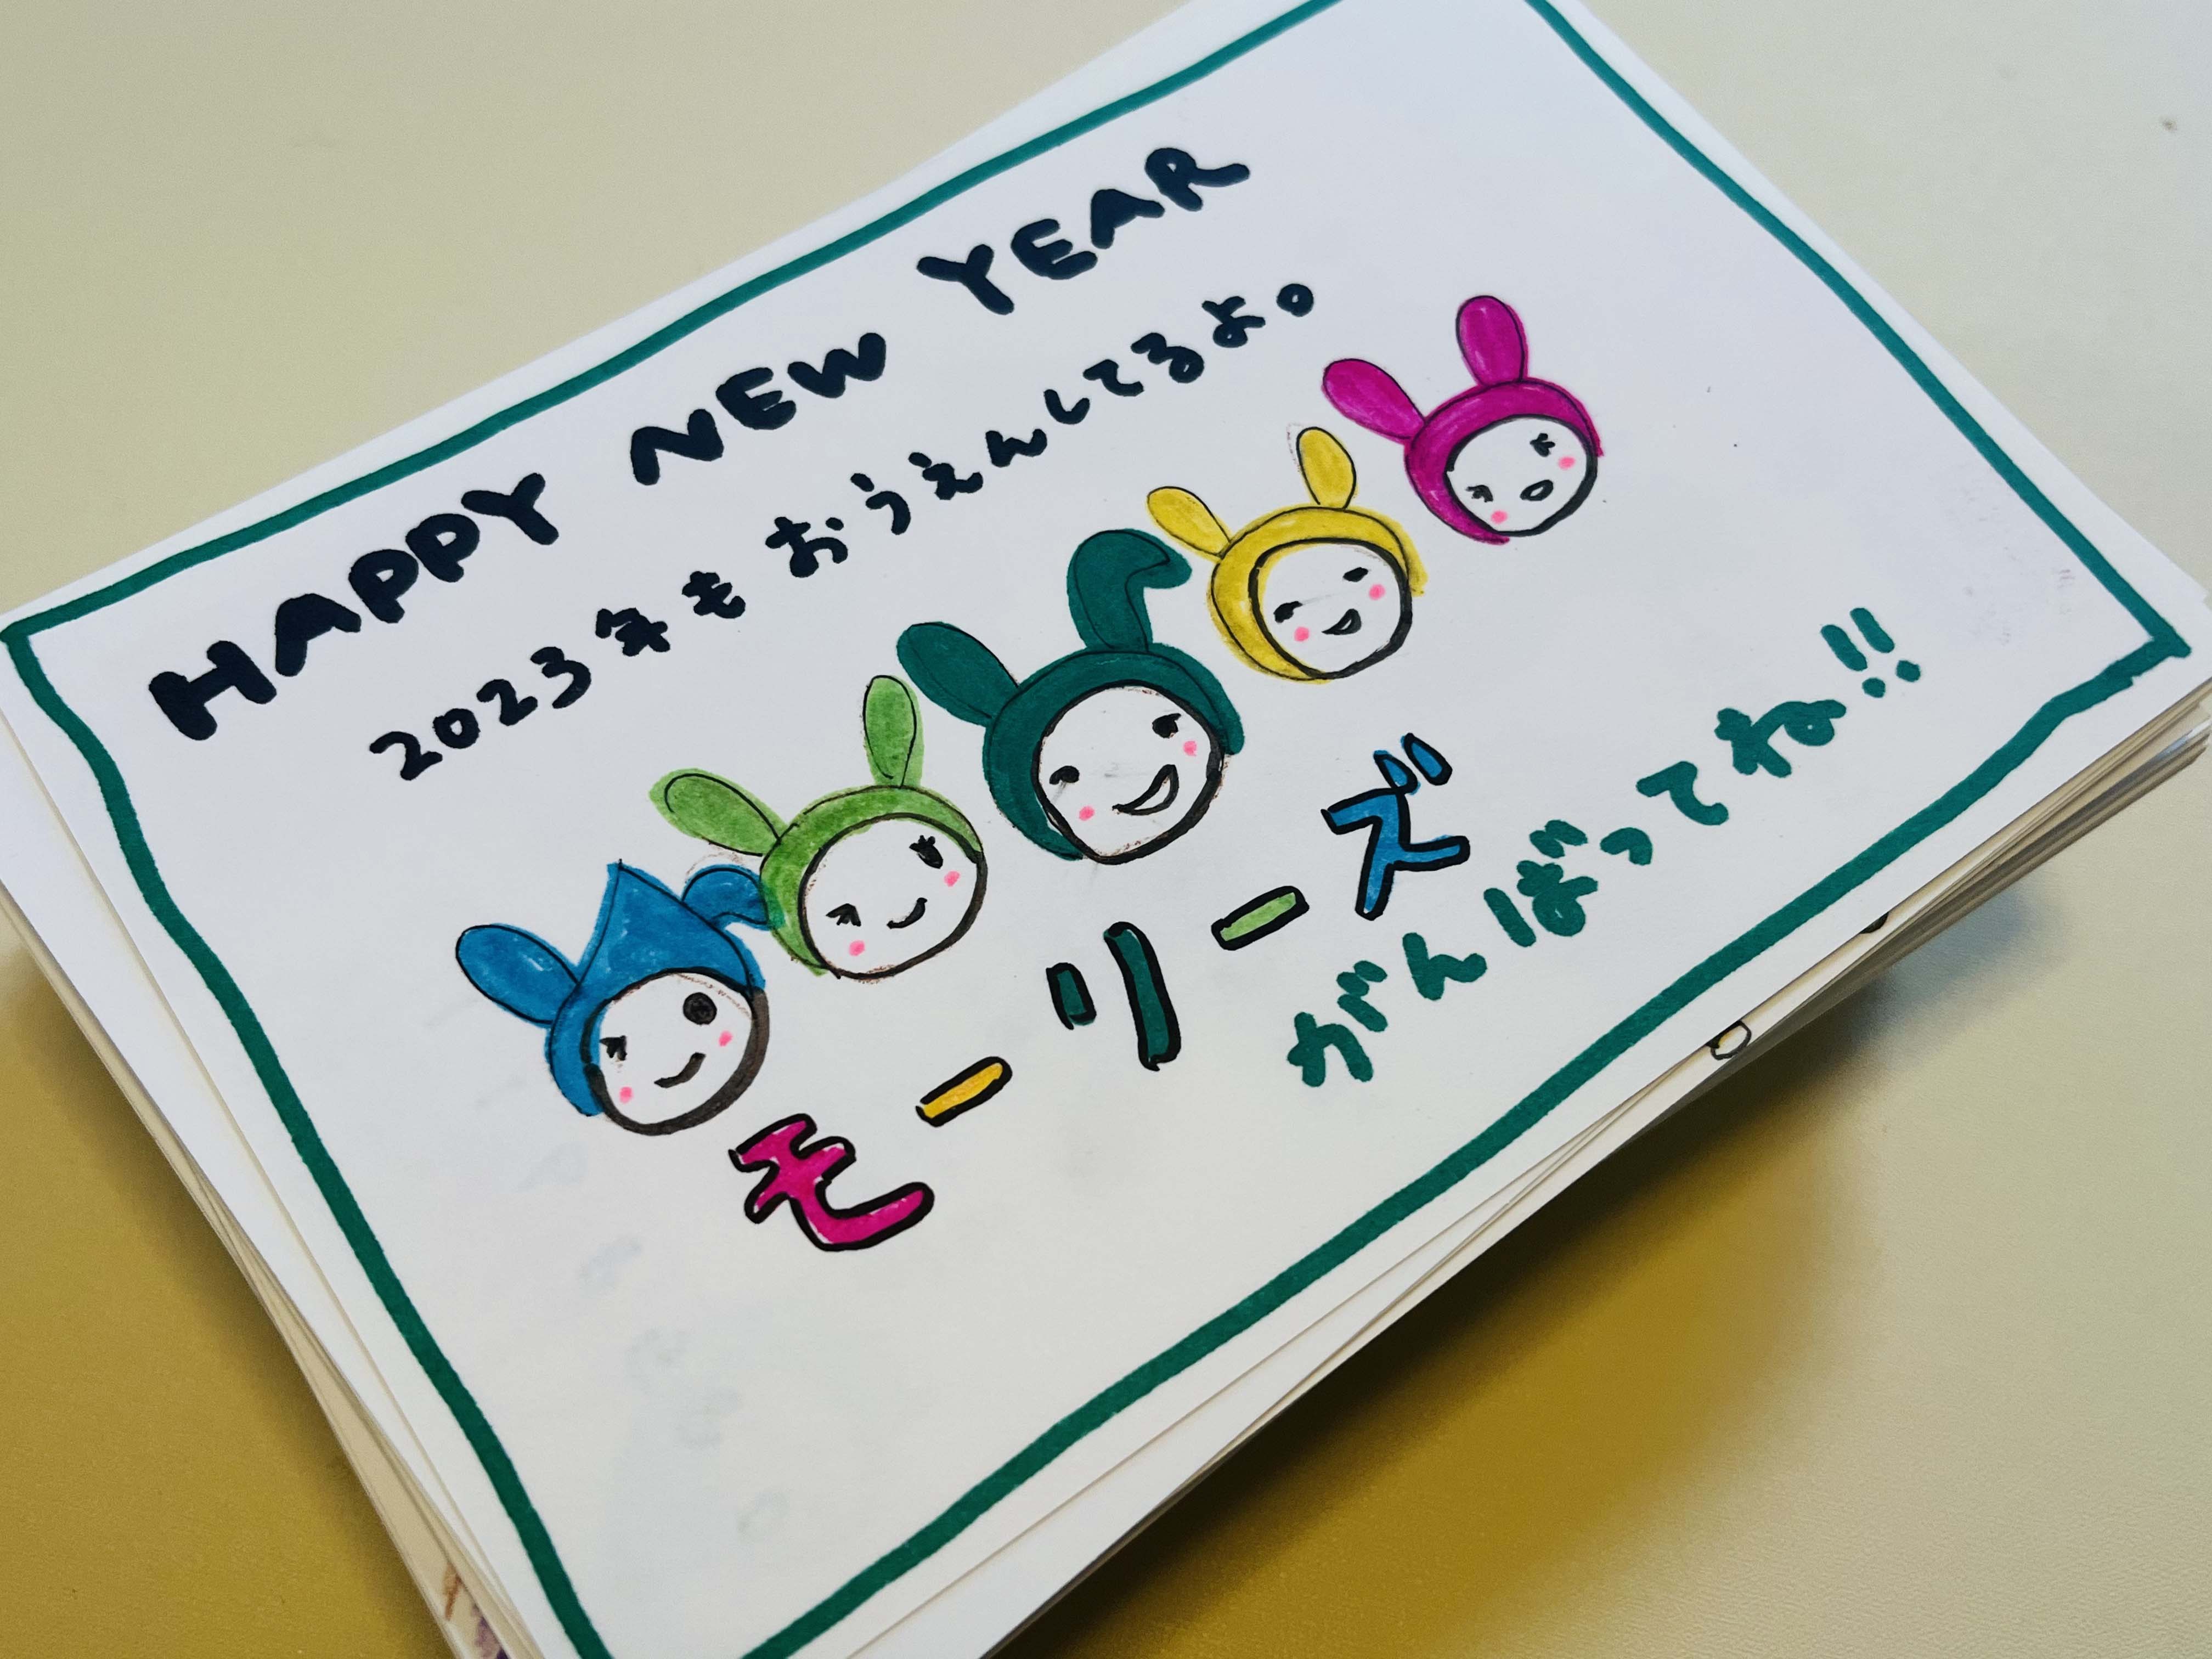 HAPPY NEW YEAR
2023年も おうえんしてるよ。
モーリーズ
がんばってね!!